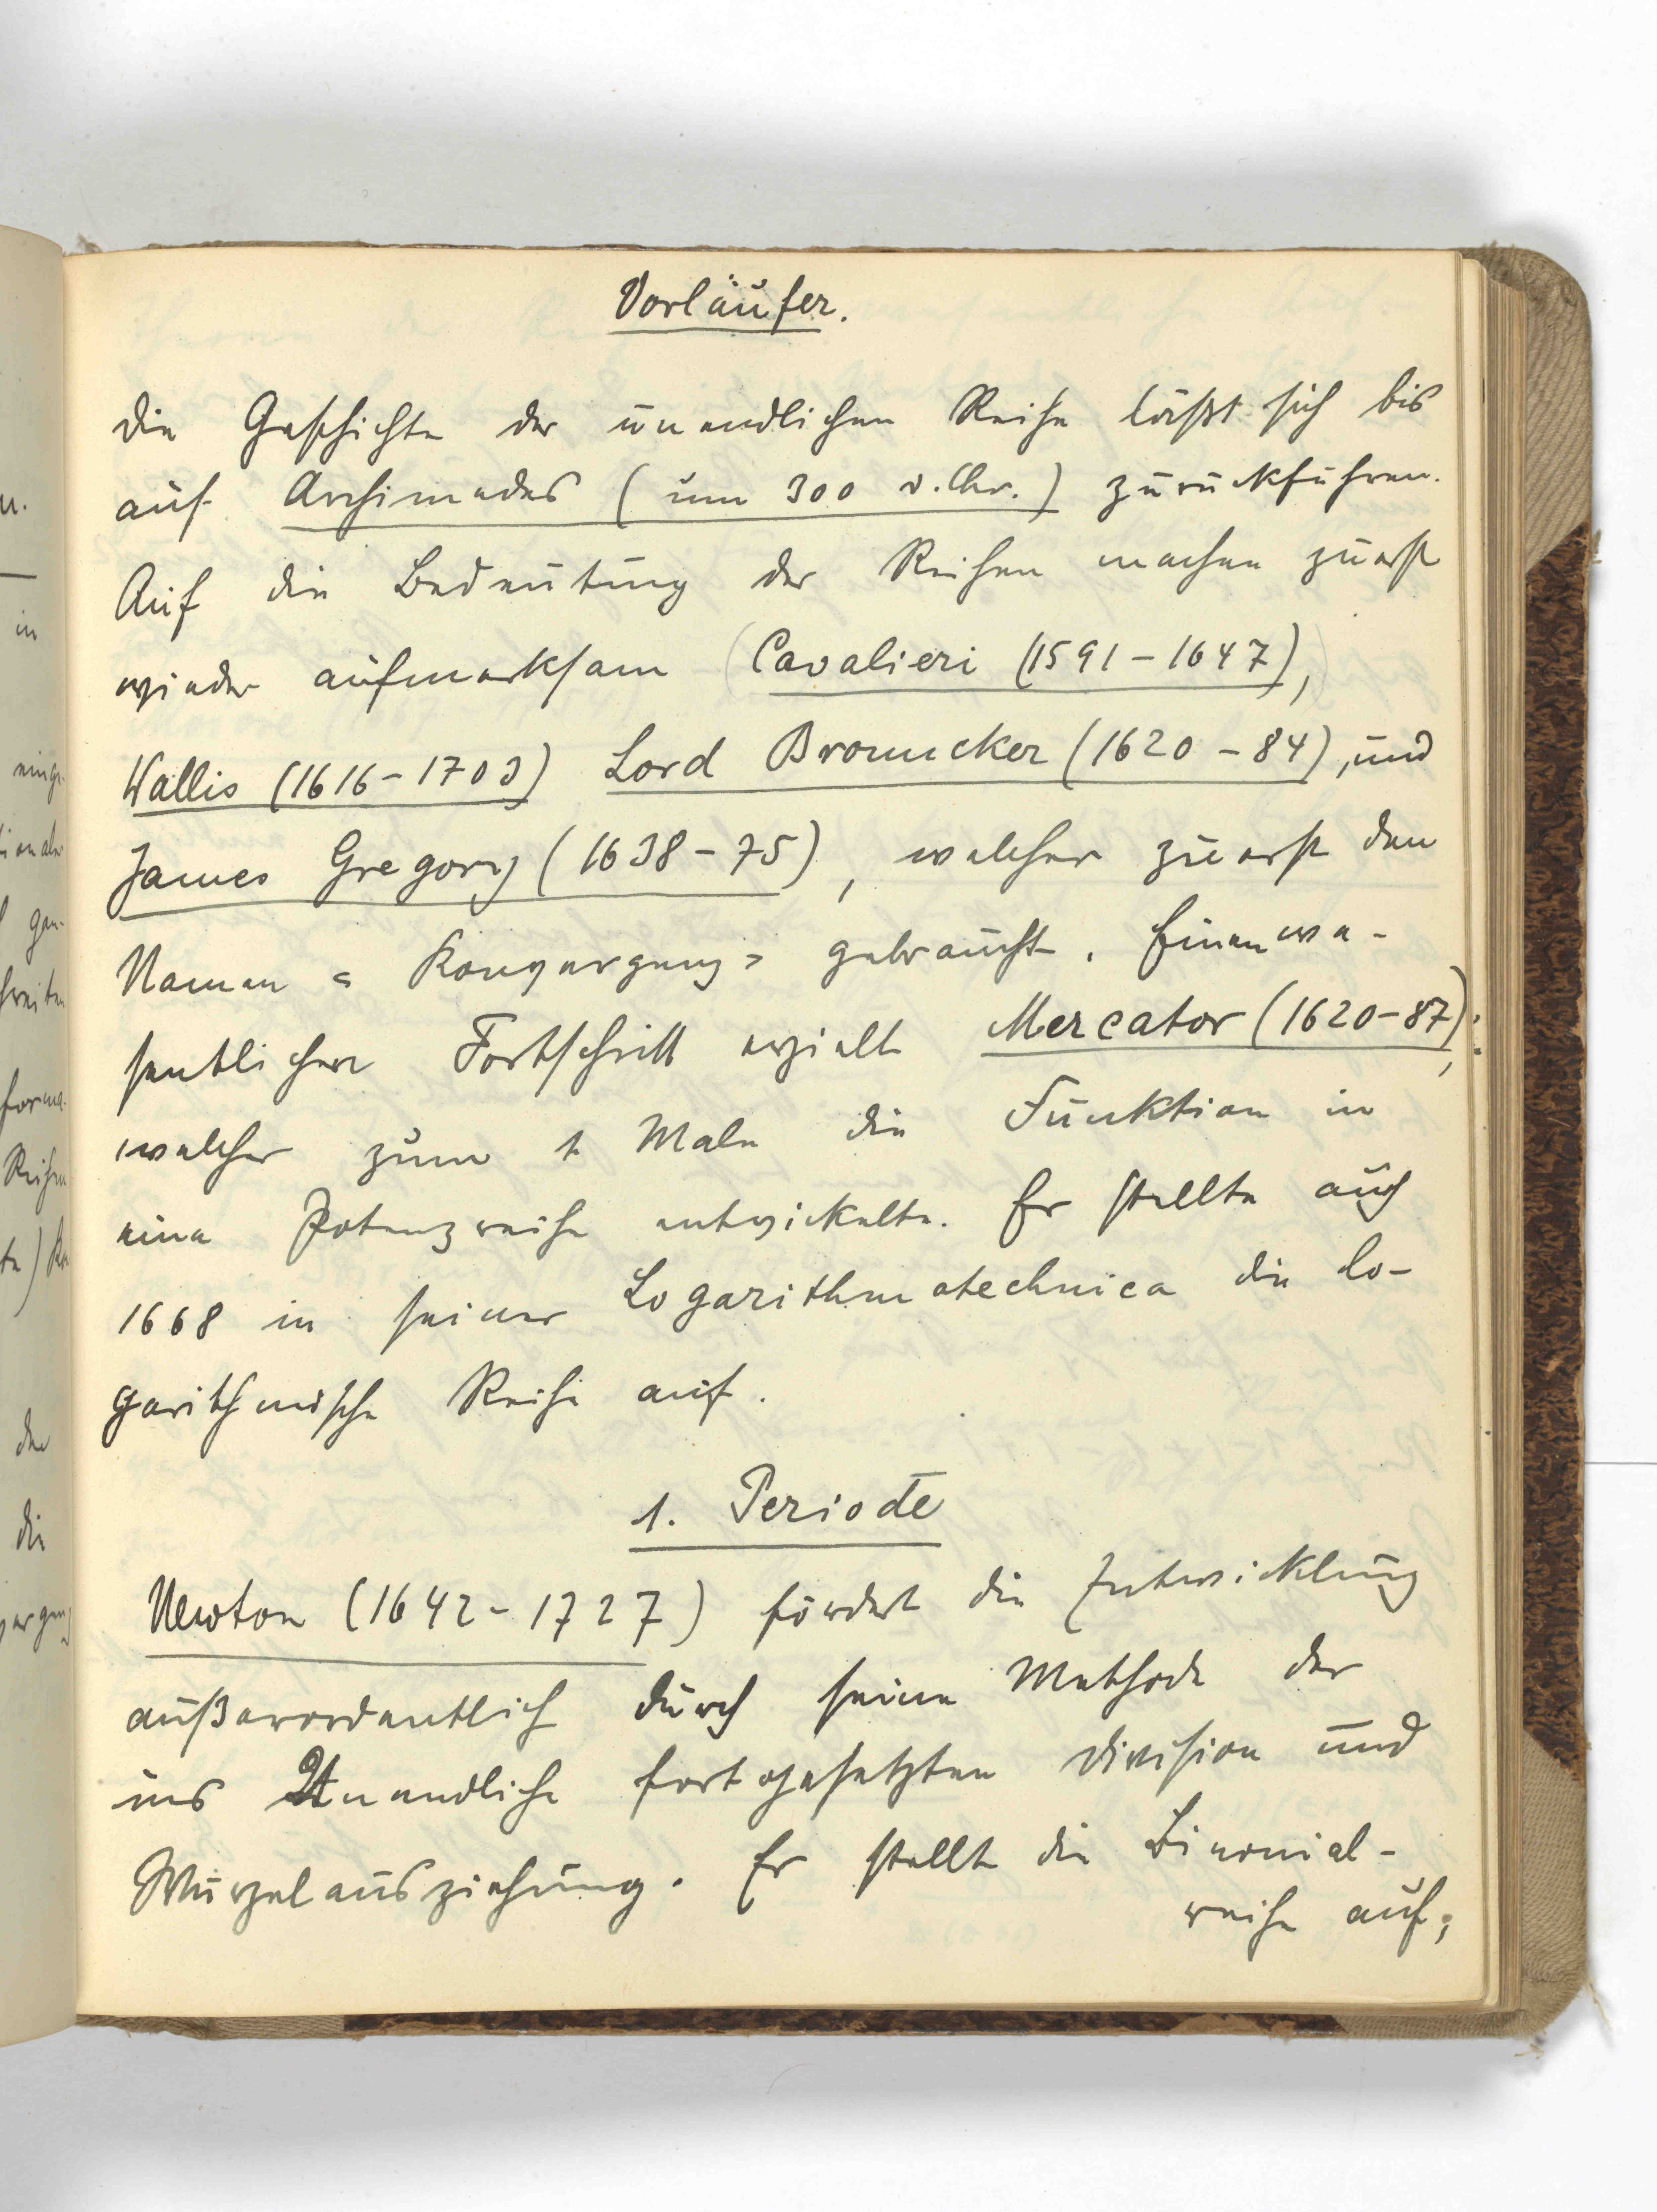 Vorläufer.
Die Geschichte der unendlichen Reihe läßt sich bis
auf Archimedes (um 300 v. Chr.) zurückführen.
Auf die Bedeutung der Reihen machen zuerst
wieder aufmerksam (Cavalieri (1591-1647),)
Wallis (1616-1703) Lord Brouncker (1620-84), und
James Gregory (1638-75), welcher zuerst den
Namen "Konvergenz" gebraucht. Einen we-
sentlichen Fortschritt erzielt Mercator (1620-87),
welcher zum 1 Male die Funktion in
eine Potenzreihe entwickelte. Er stellte auch
1668 in seiner Logarithmotechnica die lo-
garithmische Reihe auf.
1. Periode
Newton (1642-1727) fördert die Entwicklung
außerordentlich durch seine Methode der
ins Unendliche fortgesetzten Division und
Wurzelausziehung. Er stellt die Binomial-
reihe auf;